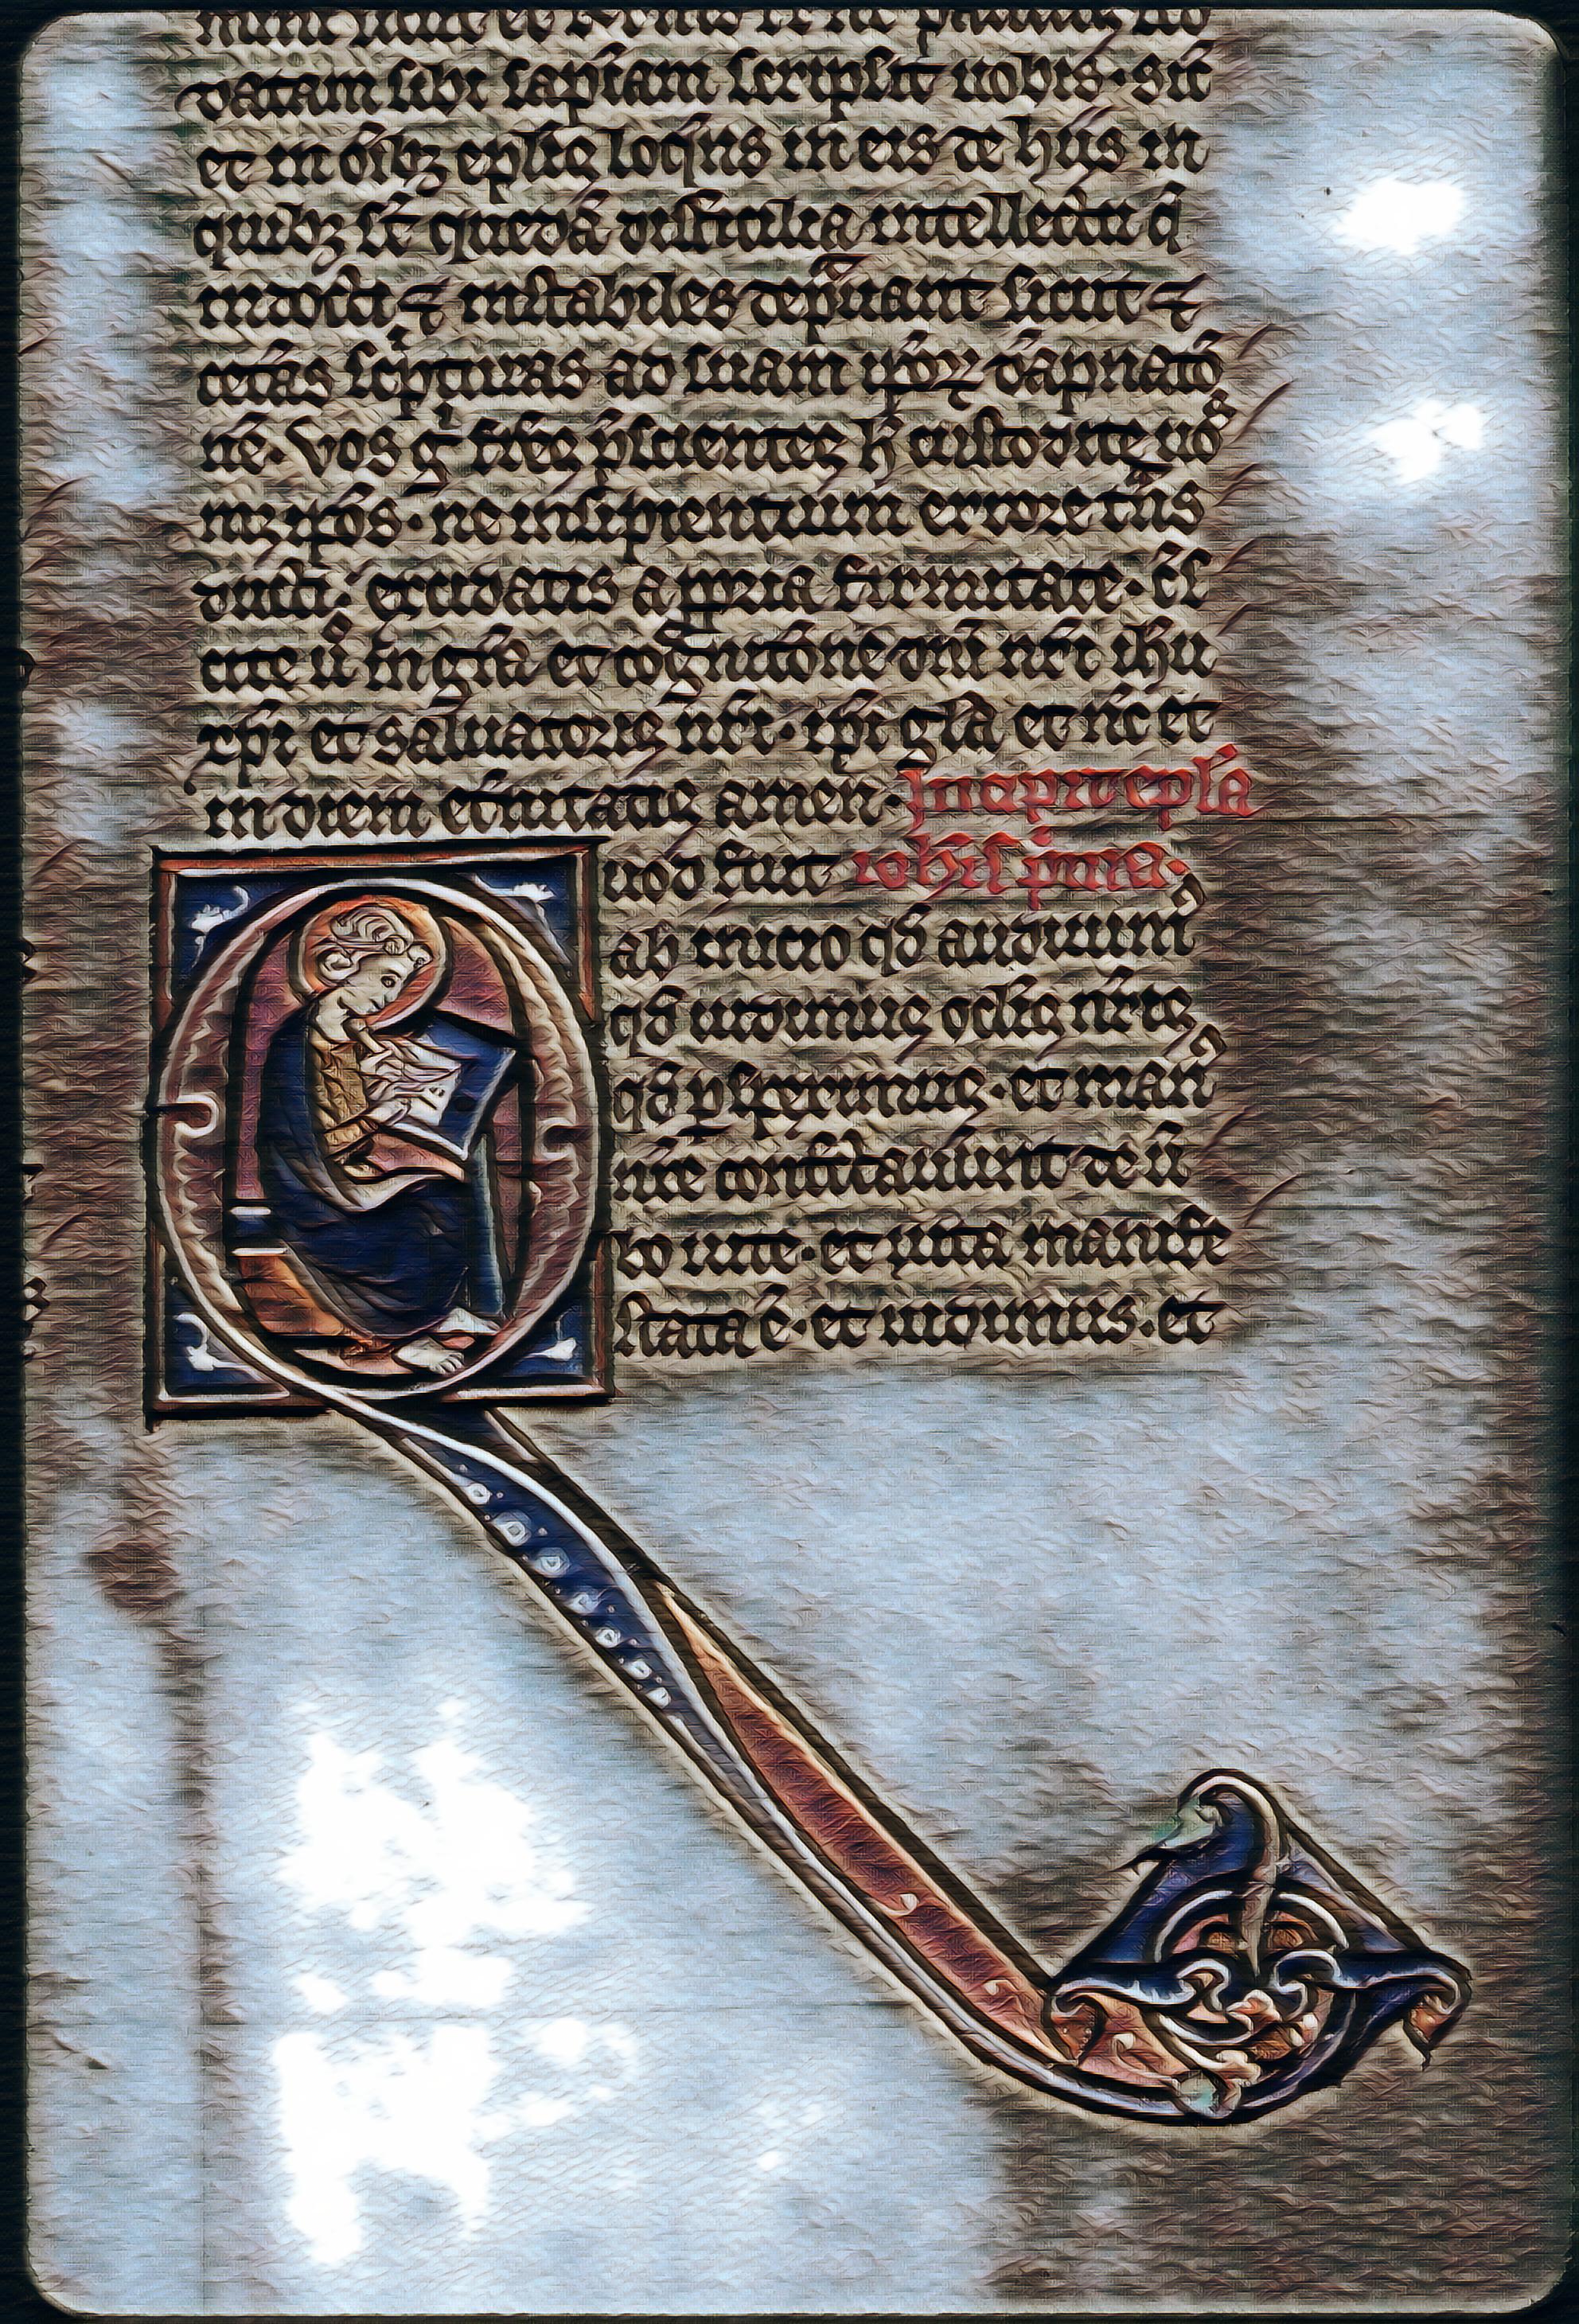 datam sibi sapiam scripsit uobis · sic̄
et in oībꝫ eplis loq̄ns in eis de hiis in
quibꝫ st̄ quedā difficilia intellectu q̄
indocti ⁊ instabiles dep̄uant sicut ⁊
cet̄as sc̄pturas ad suam ip̄oꝝ dāpnatō
nē · vos gͦ fr̄es p̄scientes h̄ custodite uoˢ
ne insipientium errore t̄ns
ducti · excidatis a ꝓpria firmitate · c̄s
cite uͦ in gr̄a et cognitōne dn̄i nr̄i ih̄u
xp̄i et saluatoris nr̄i · ip̄i gl̄a et nc̄ et
in diem et̄nitatis amen · Incipit epl̄a
Quod fuit ioh̄is p̄ma ·
ab inicio qd̄ audiuimꝰ
qd̄ uidimus oclis nr̄is
qd̄ ꝑspeximus · et manꝰ
nr̄e contc̄tauerunt de u̅
bo uite · et uita manife
stata ē · et uidimus · et